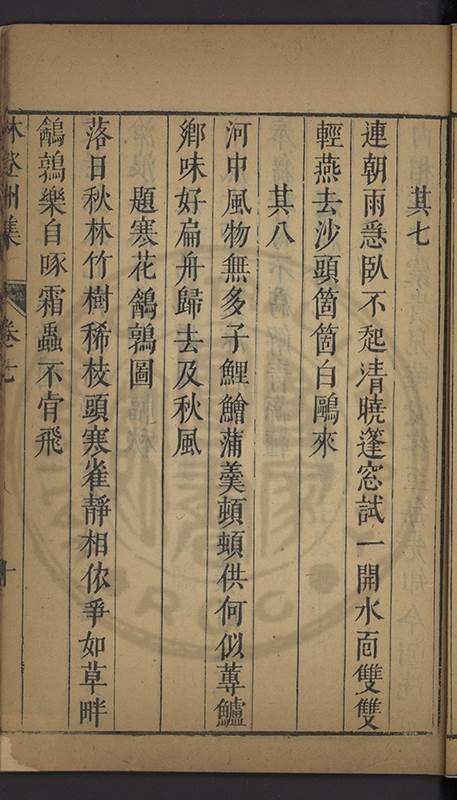 其七
連朝雨悪臥不起清曉篷窓試一開水面雙雙
輕燕去沙頭箇箇白鷗來
其八
河中風物無多子鯉鱠蒲羹頓頓供何似蓴鱸
鄉味好扁舟歸去及秋風
題寒花鵪鶉圖
落日秋林竹樹稀枝頭寒雀靜相依爭如草畔
鵪鶉樂自啄霜蟲不肯飛
林登州集
卷七
十